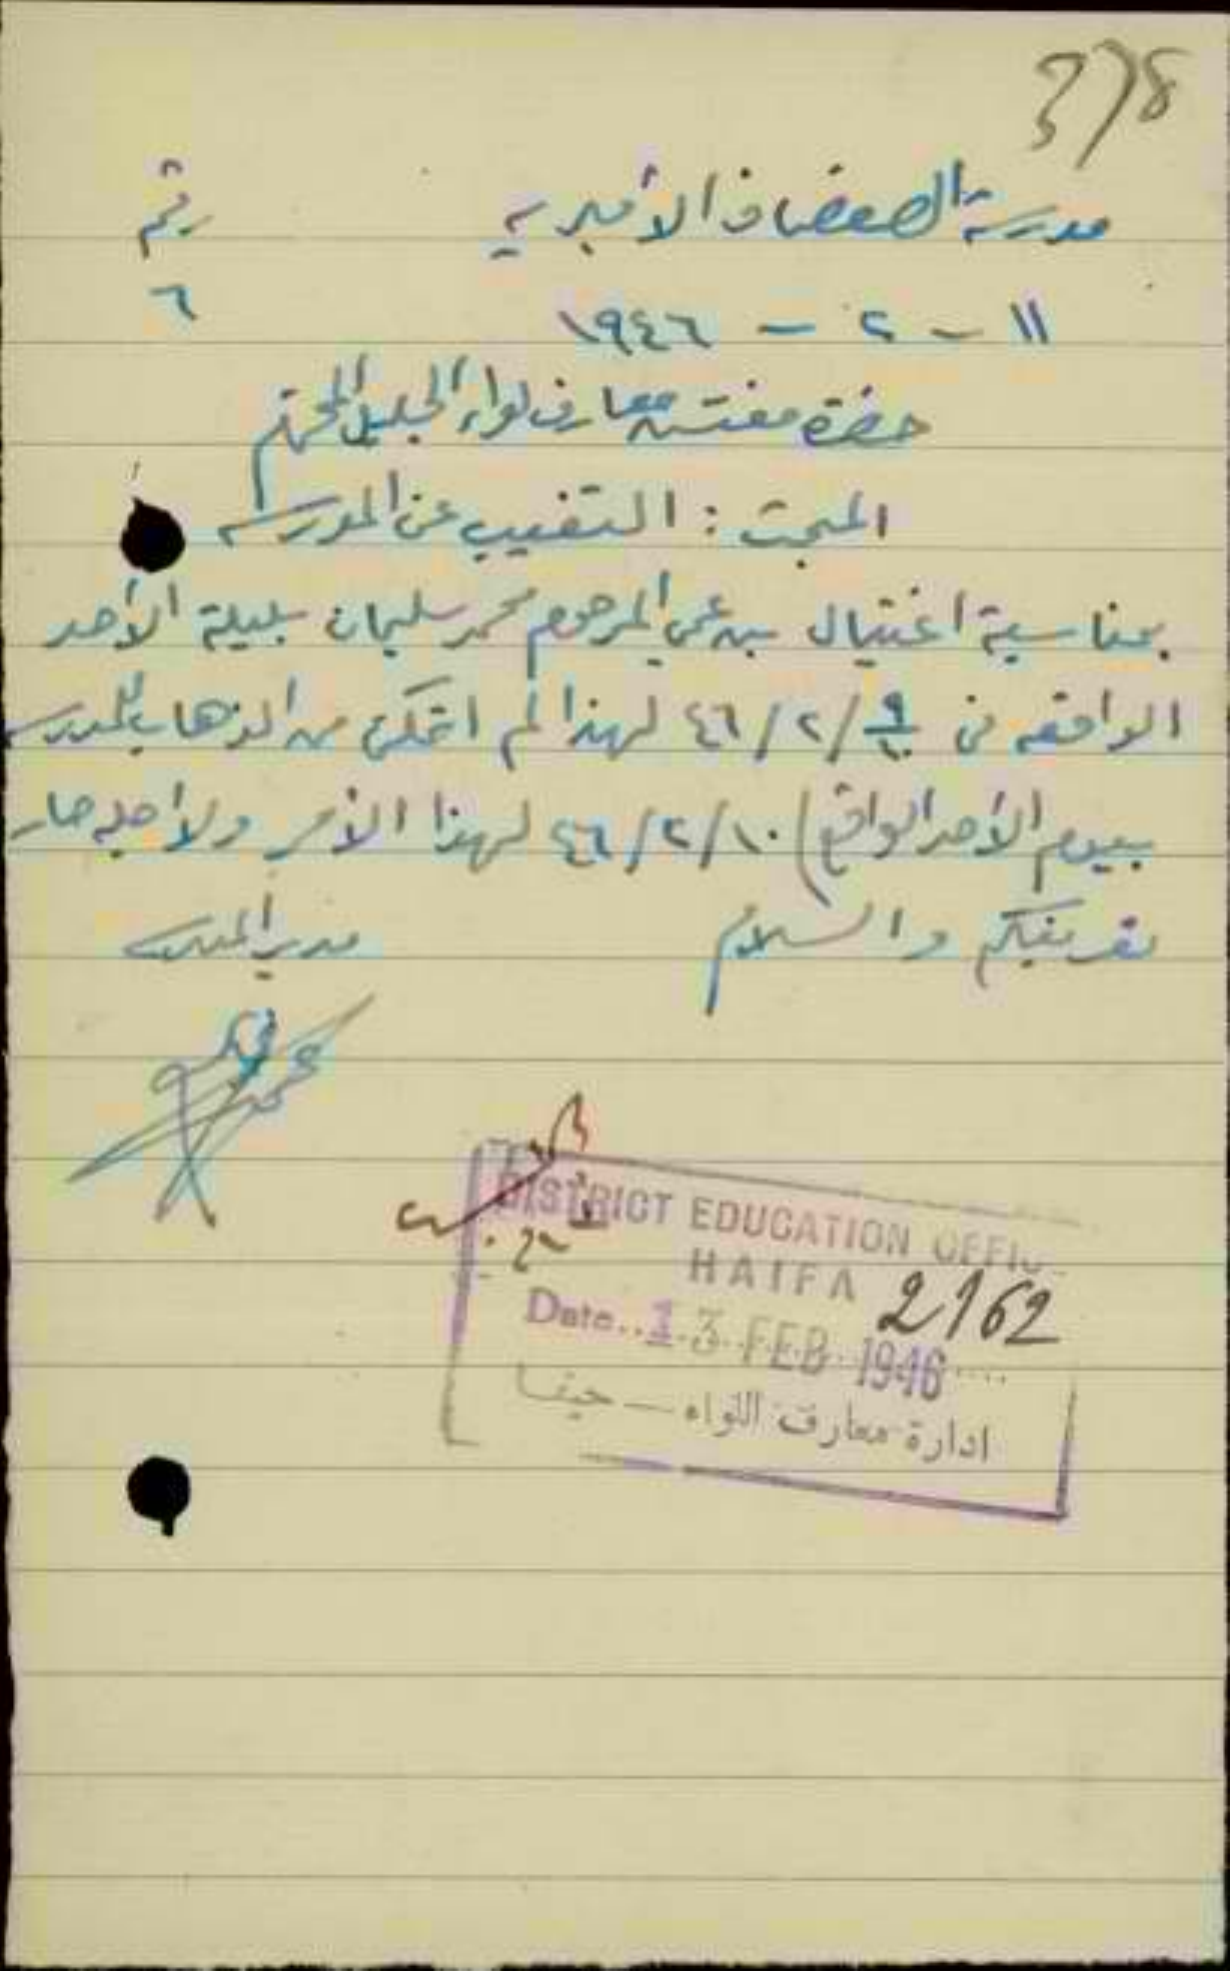 378
مدرسة الصفصاف الأميرية رقم
١١ - ٢ - ١٩٤٦ ٦
حضرة مفتش معارف لواء الجليل المحترم
المبحث : التغيب عن المدرسة
بمناسبة اغتيال بن عمي المرحوم محمد سليمان بليلة الأحد
الواقعه في ٩/١٠ /٢/٤٦ لهذا لم اتمكن من الذهاب للمدرسة
بيوم الأحد الواقع ١٠/٢/٤٦ لهذا الأمر ولأجله صار
تعريفكم والسلام مدير المدرسة
DISTRICT EDUCATION OFFIC
HAIFA 2162
Date 13 FEB 1946
ادارة معارف اللواء — حيفا